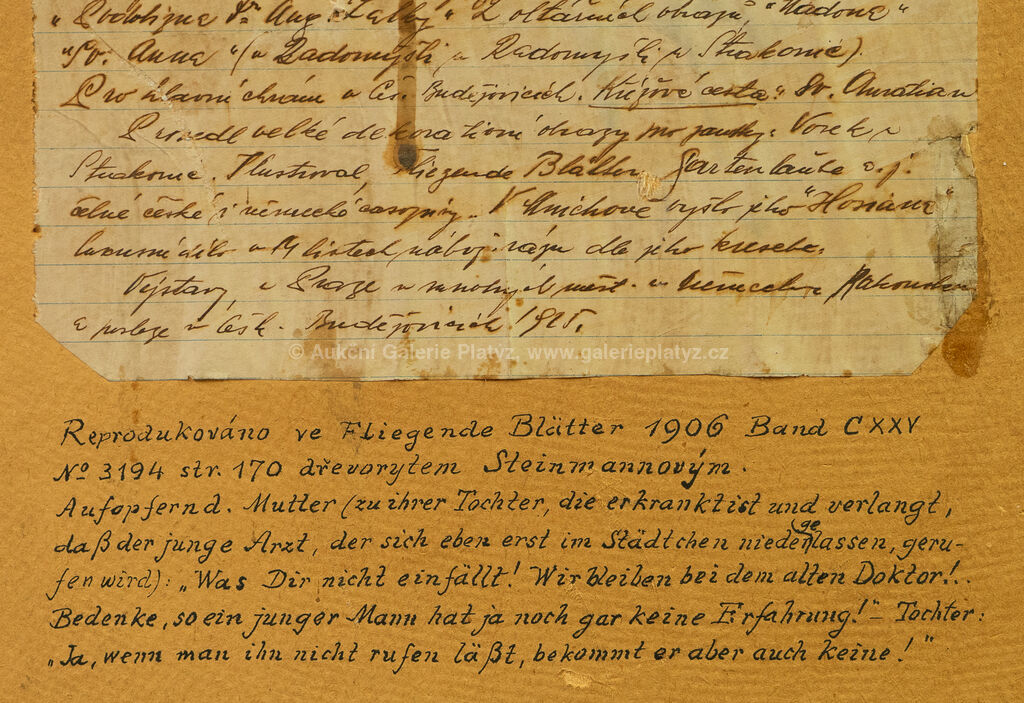 "Podobizna Dra Aug. Zátky" 2 oltářních obrazů, "Madona"
"Sv. Anna" (u Radomyšli u Strakonic).
Pro hlavní chrám v Čes. Budějovicích. Křížová cesta, Sv. Auratian
Provedl velké dekorativní obrazy pro
Strakonice. Ilustroval Fliegende Blätter, Gartenlaube a j.
čelné české i německé časopisy. V Mnichově vyšlo jeho "Hosiana"
luxusní dílo o 14 listech dle jeho kreseb.
Výstavy, v Praze v mnohých měst. v Německu, Rakousku
a posléze v Česk. Budějovicích 1925.
© Aukční Galerie Platýz, www.galerieplatyz.cz
Reprodukováno ve Fliegende Blätter 1906 Band CXXV
No 3194 str. 170 dřevorytem Steinmannovým.
Aufopfernd. Mutter (zu ihrer Tochter, die erkrankt ist und verlangt,
daß der junge Arzt, der sich eben erst im Städtchen niedergelassen, geru-
fen wird): „Was Dir nicht einfällt! Wir bleiben bei dem alten Doktor!..
Bedenke, so ein junger Mann hat ja noch gar keine Erfahrung!" – Tochter:
„Ja, wenn man ihn nicht rufen läßt, bekommt er aber auch keine!"